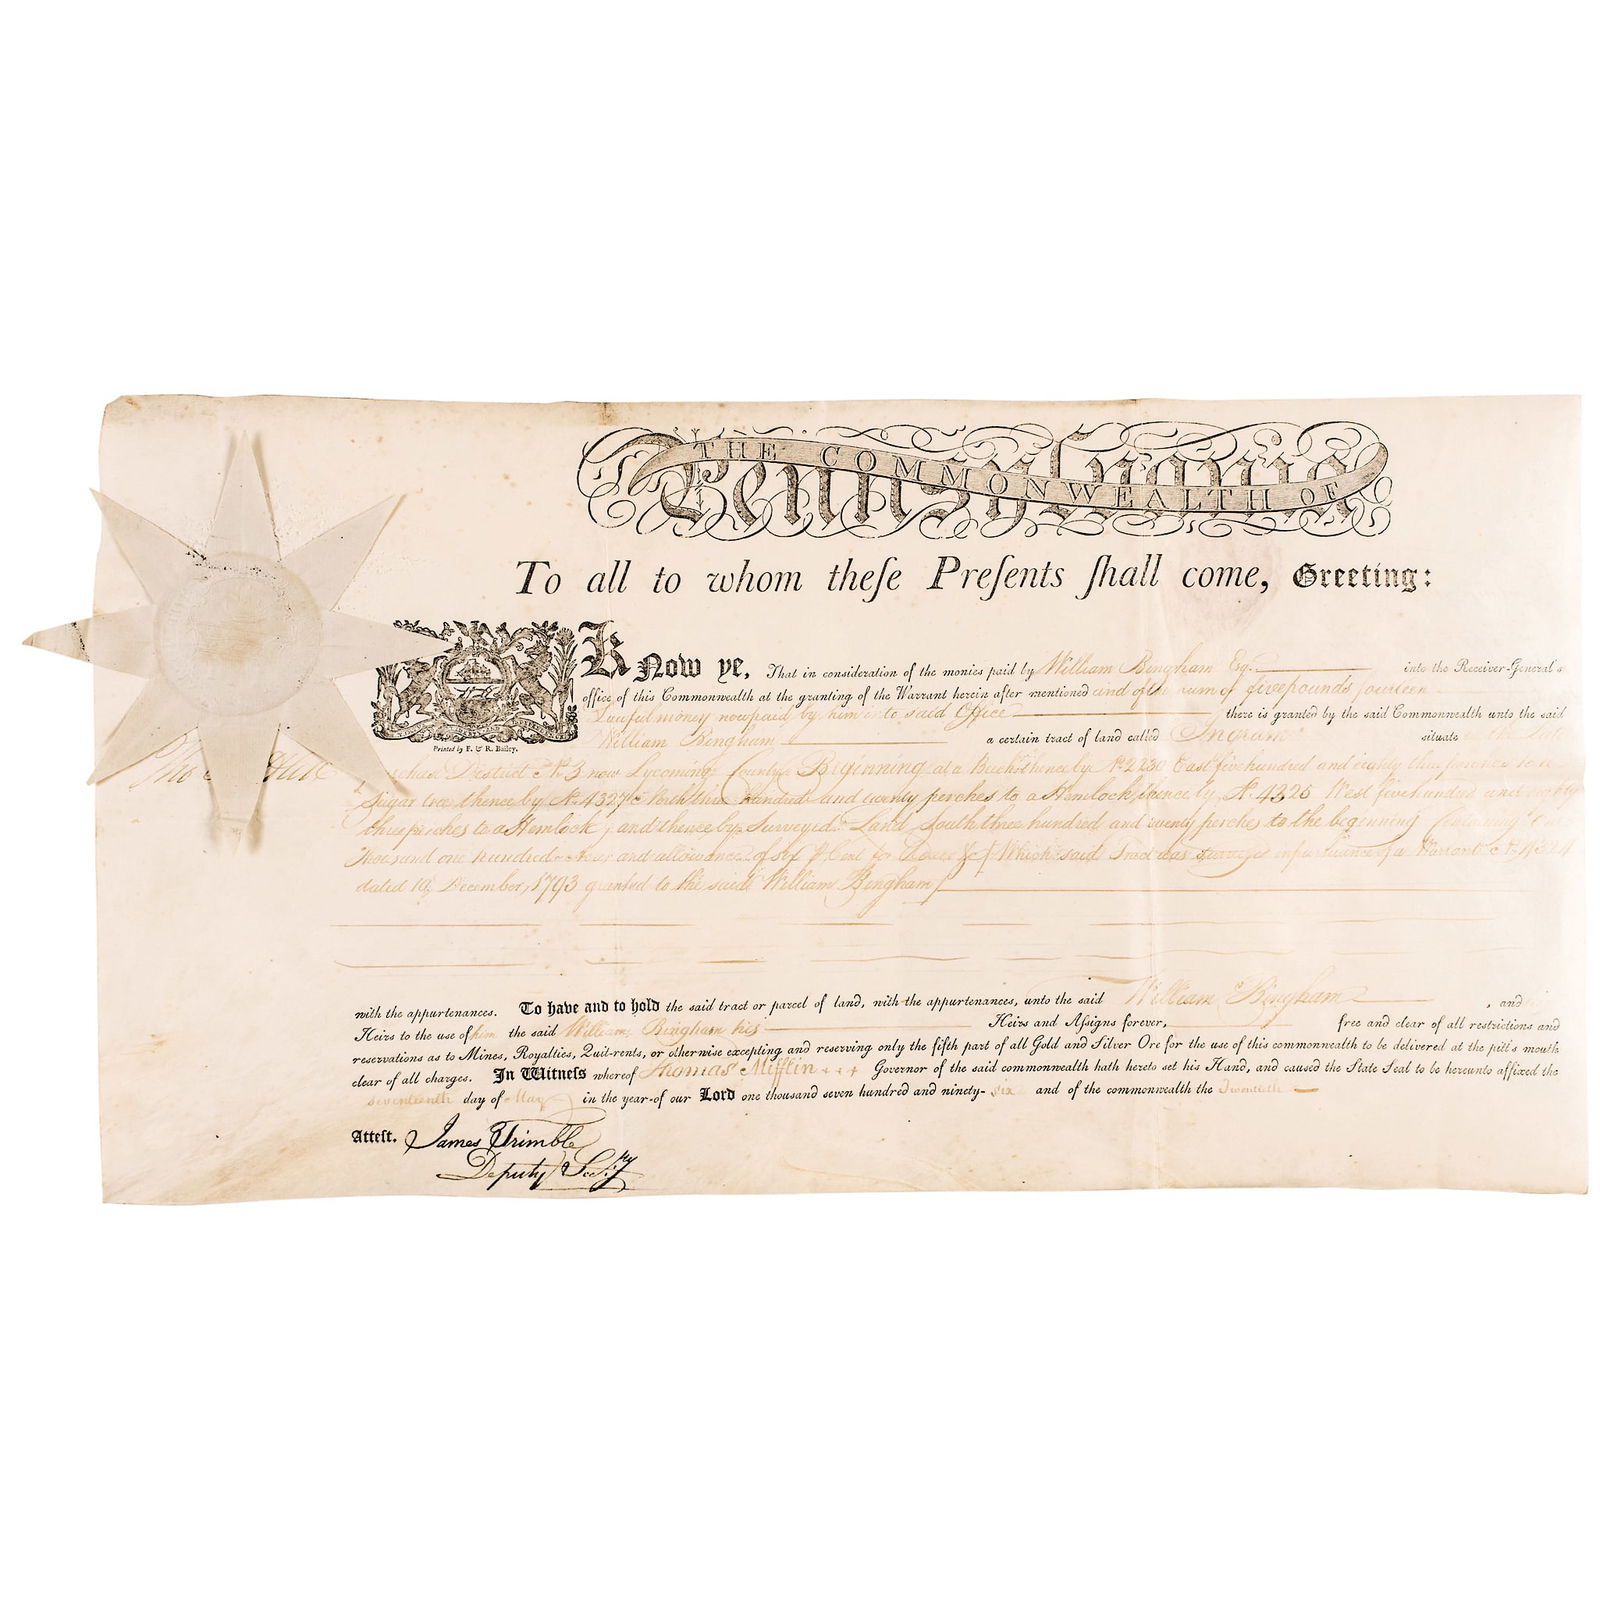 THE COMMONWEALTH OF
Pennsylvania
To all to whom theſe Preſents ſhall come, Greeting:
Know ye, That in consideration of the monies paid by William Bingham Esq. into the Receiver-General's
office of this Commonwealth at the granting of the Warrant herein after mentioned and of the sum of five pounds fourteen
Lawful money now paid by him into said Office there is granted by the said Commonwealth unto the said
William Bingham a certain tract of land called Ingram situate
Printed by F. & R. Bailey.
Tho
District No. 3 now Lycoming County Beginning at a Beech thence by No. 2230 East five hundred and eighty three perches to a
Sugar tree thence by No. 4327 North three hundred and twenty perches to a Hemlock, thence by No. 4325 West five hundred and eighty
three perches to a Hemlock, and thence by Surveyed Land South three hundred and twenty perches to the beginning Containing
thousand one hundred and allowance of six P Cent for &c. Which said Tract was surveyed in pursuance of a Warrant No. 4324
dated 10 December, 1793 granted to the said William Bingham
with the appurtenances. To have and to hold the said tract or parcel of land, with the appurtenances, unto the said William Bingham, and
Heirs to the use of him the said William Bingham his Heirs and Aſsigns forever, free and clear of all restrictions and
reservations as to Mines, Royalties, Quit-rents, or otherwise excepting and reserving only the fifth part of all Gold and Silver Ore for the use of this commonwealth to be delivered at the pit's mouth
clear of all charges. In Witneſs whereof Thomas Mifflin Governor of the said commonwealth hath hereto set his Hand, and caused the State Seal to be hereunto affixed the
seventeenth day of May in the year of our Lord one thousand seven hundred and ninety-six and of the commonwealth the Twentieth
Atteſt. James Trimble
Deputy Secry